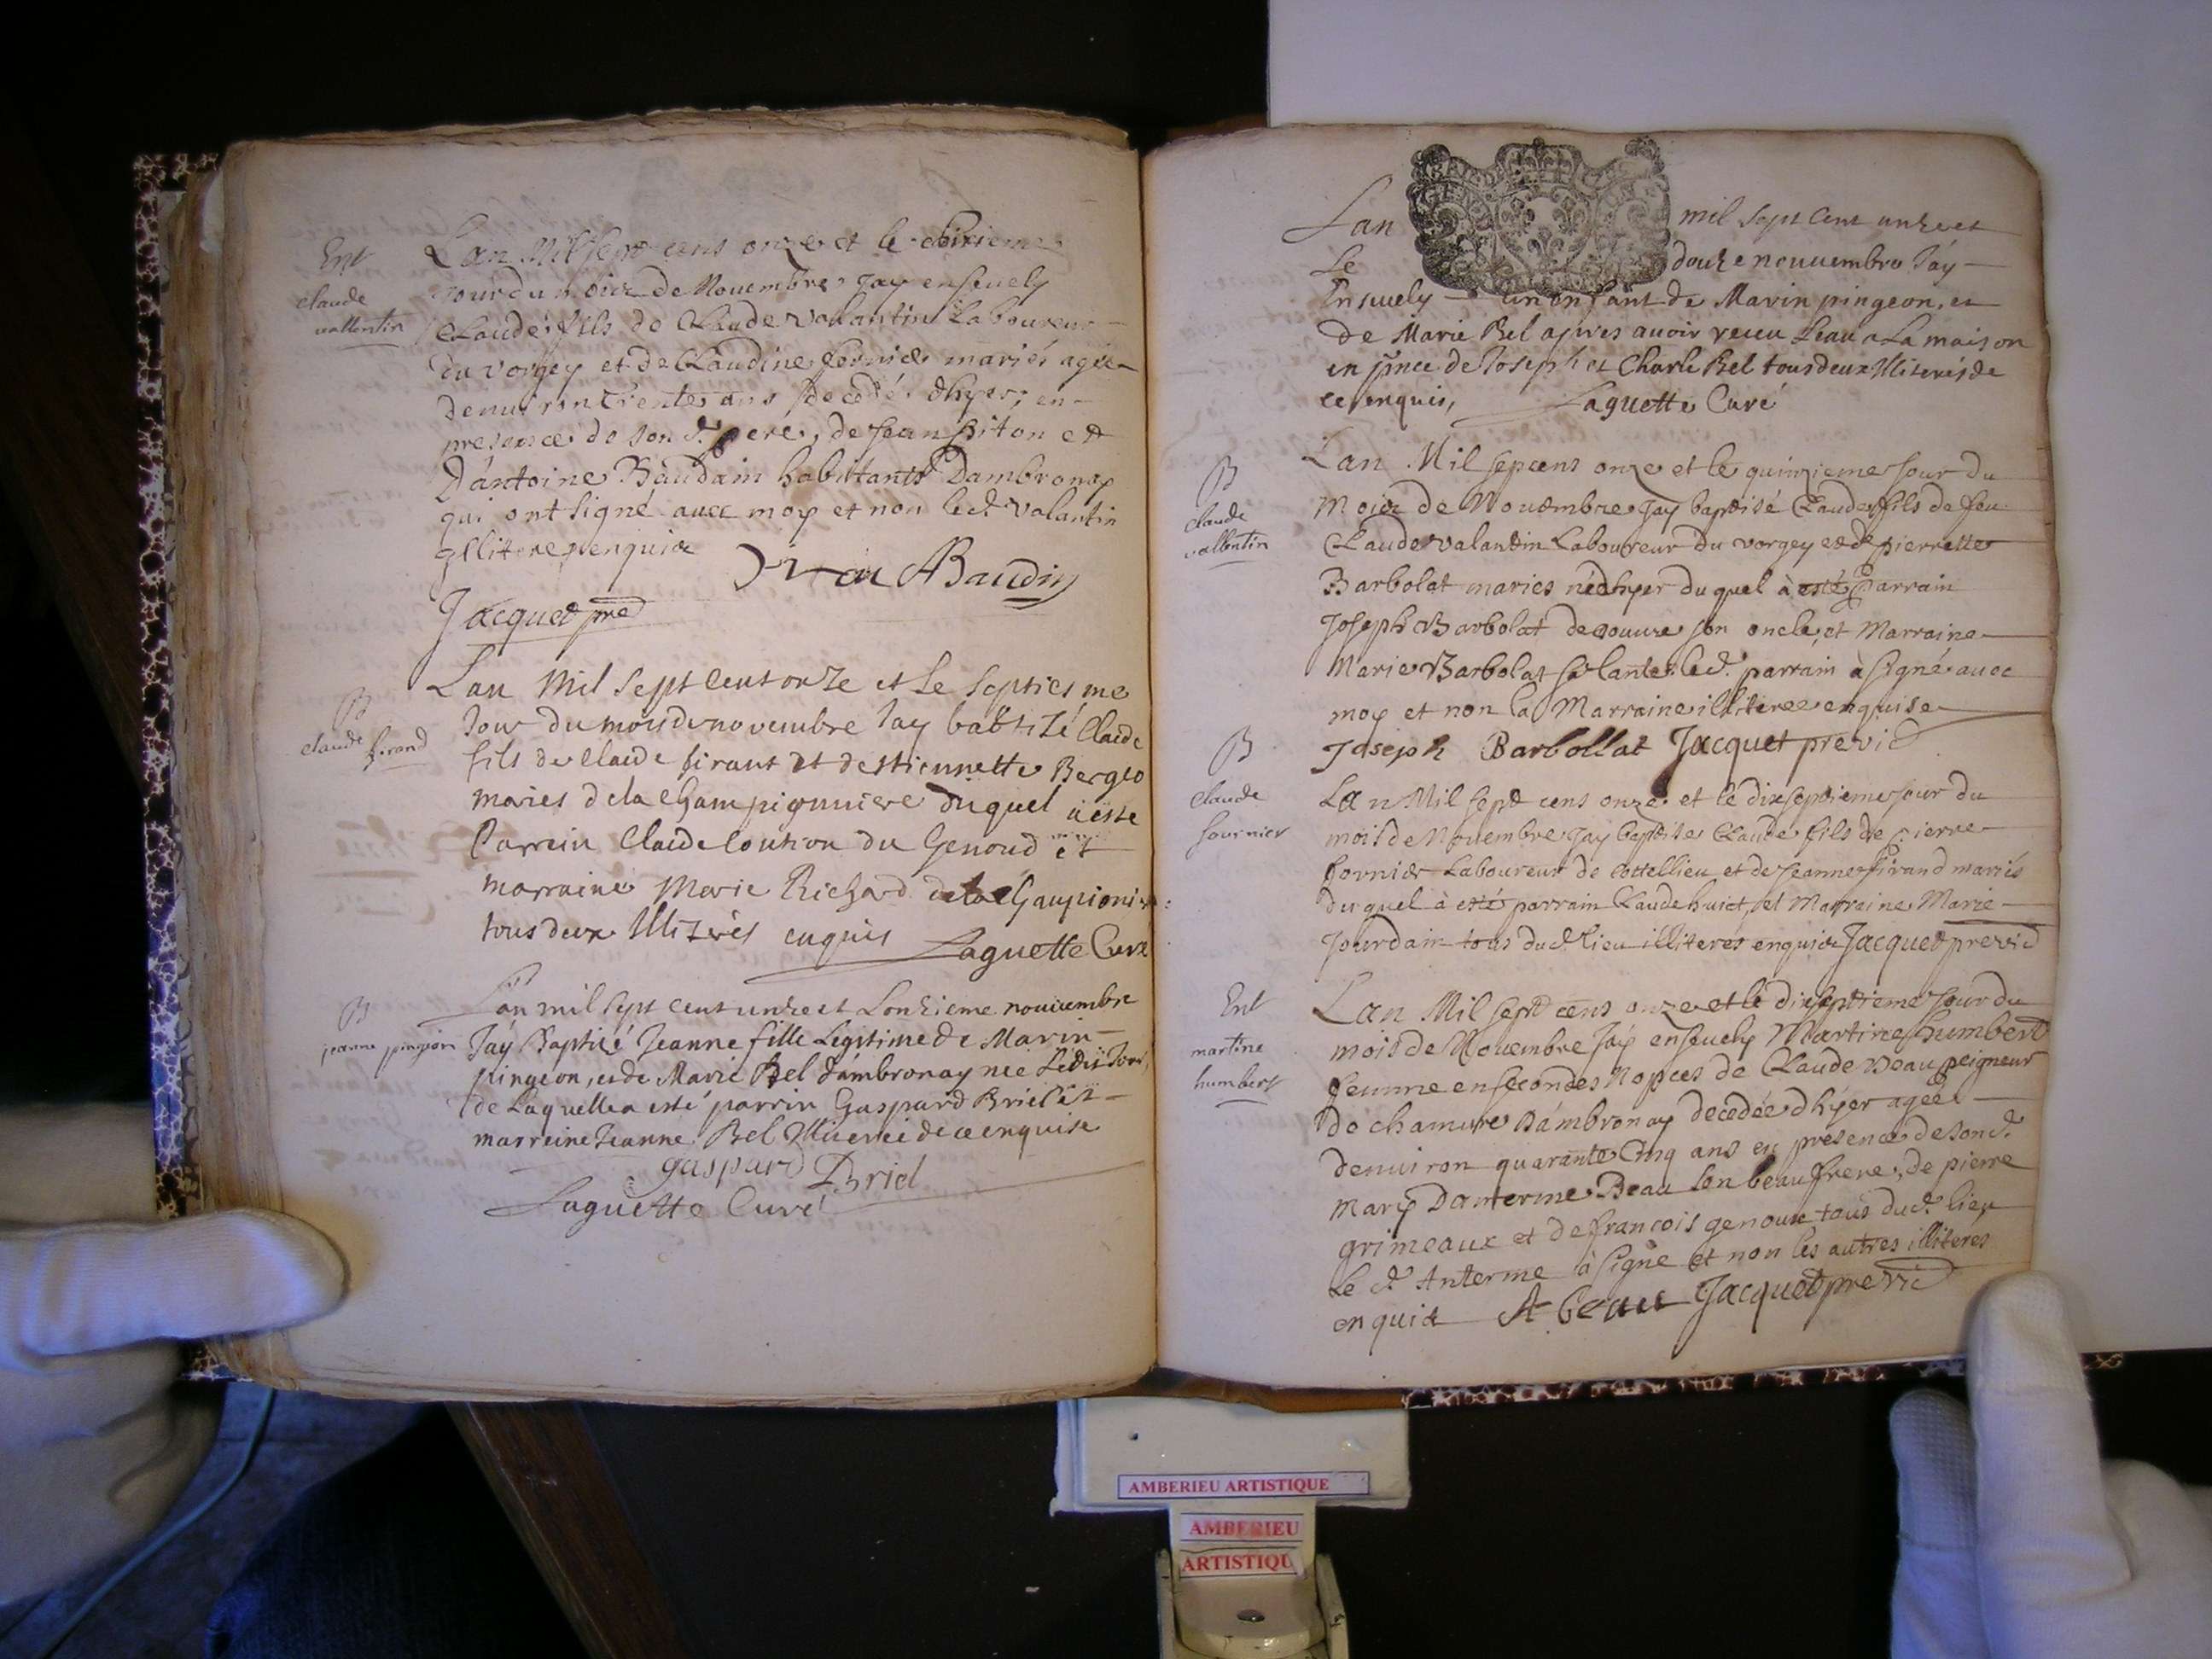 Ent
claude
vallentin
Lan Mil sept cens onze et le
Jour du moix de Nouembre Jay enseuely
Claude fils de Claude valantin Laboureur
du vorgey et de Claudine fernier mariés agée
denuiron Trente ans decedé dhyer, en
presence de son d. pere, de Jean piton et
D'antoine Baudain habitants Dambronay
qui ont signé auec moy et non led. valantin
Illiteré enquix
ABaudin
Jacquet pre
B
claude sirand
Lan Mil sept cent onze et le septiesme
Jour du mois de novembre Jay babtizé Claude
fils de Claude sirant et destiennette Bergeo
maries de la Champignniere duquel a este
Parrein Claude Coution du Genoud et
marraine Marie Richard de la Chanpionie
tous deux Illiterés enquis Laguette Curé
B
jeanne pingeon
Lan mil sept cent unze et Lonzieme nouuembre
Jaÿ Baptizé Jeanne fille Legitime de Marin
pingeon, et de Marie Bel d'ambronay neé Ledit Jour,
de Laquelle a esté parrin Gaspard Briel et
marreine Jeanne Bel Illiterée de ce enquise
gaspard Briel
Laguette Curé
Lan mil sept cent unze et
Le douze nouuembre Jáy
Ensuuely un enfant de Marin pingeon, et
de Marie Bel apres auoir receu Leau a La maison
en pnce de Joseph et Charle Bel tous deux Illiterés de
ce enquis, Laguette Curé
B
claude
vallentin
Lan Mil sepcens onze et le quinzieme Jour du
Moix de Nouembre Jay baptisé Claude fils de feu
Claude valantin Laboureur du vorgey et de pierrette
Barbolat maries né dhyer du quel à esté Parrain
Joseph Barbolat de couure son oncle, et Marraine
Marie Barbolat sa tante led. parrain à signé auec
moy et non la Marraine illiteree enquise
Joseph Barbollat Jacquet previc
B
claude
fournier
Lan Mil sept cens onze et le dixseptieme Jour du
mois de Nouembre Jay baptise Claude fils de pierre
fornier Laboureur de Cottellieu et de Jeanne sirand mariés
duquel à esté parrain Claude huiet, et Marraine Marie
Jourdain tous dud. lieu illiterés enquix Jacquet previc
Ent
martine
humbert
Lan Mil sept cens onze et le dixseptieme Jour du
mois de Nouembre Jaÿ enseuely Martine humbert
femme en secondes Nopces de Claude Beau peigneur
de chamure Dámbronay decedée dhyer agée
denuiron quarante Cinq ans en presence de son d.
mary Danterme Beau son beau frere, de pierre
grimeaux et de francois genoux tous dud. lieu
Le d. Anterme à signé et non les autres illiteres
enquix A beau Jacquet previc
AMBERIEU ARTISTIQUE
AMBERIEU
ARTISTIQU